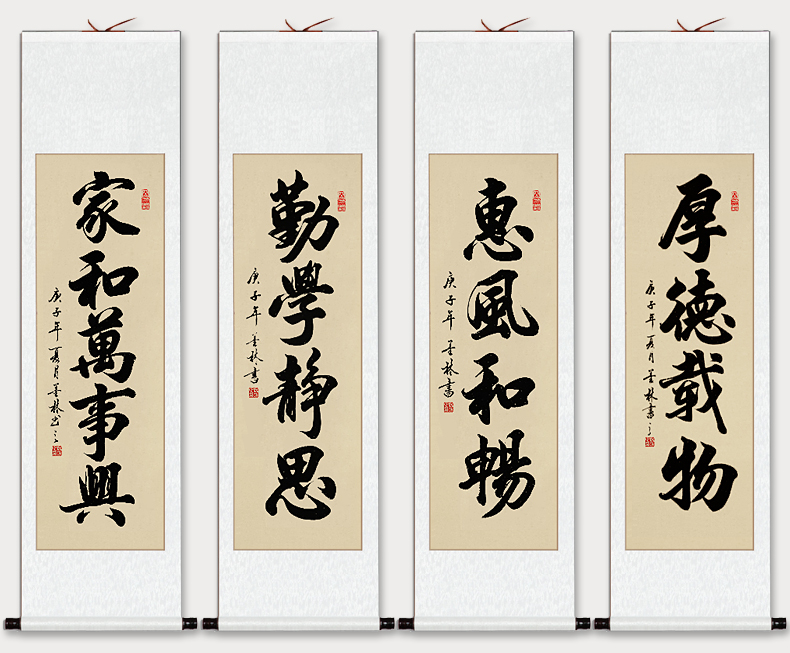 厚德载物
庚子年夏月墨林書之
惠風和暢
庚子年墨林書
勤學静思
庚子年墨林書
家和萬事興
庚子年夏月墨林書之